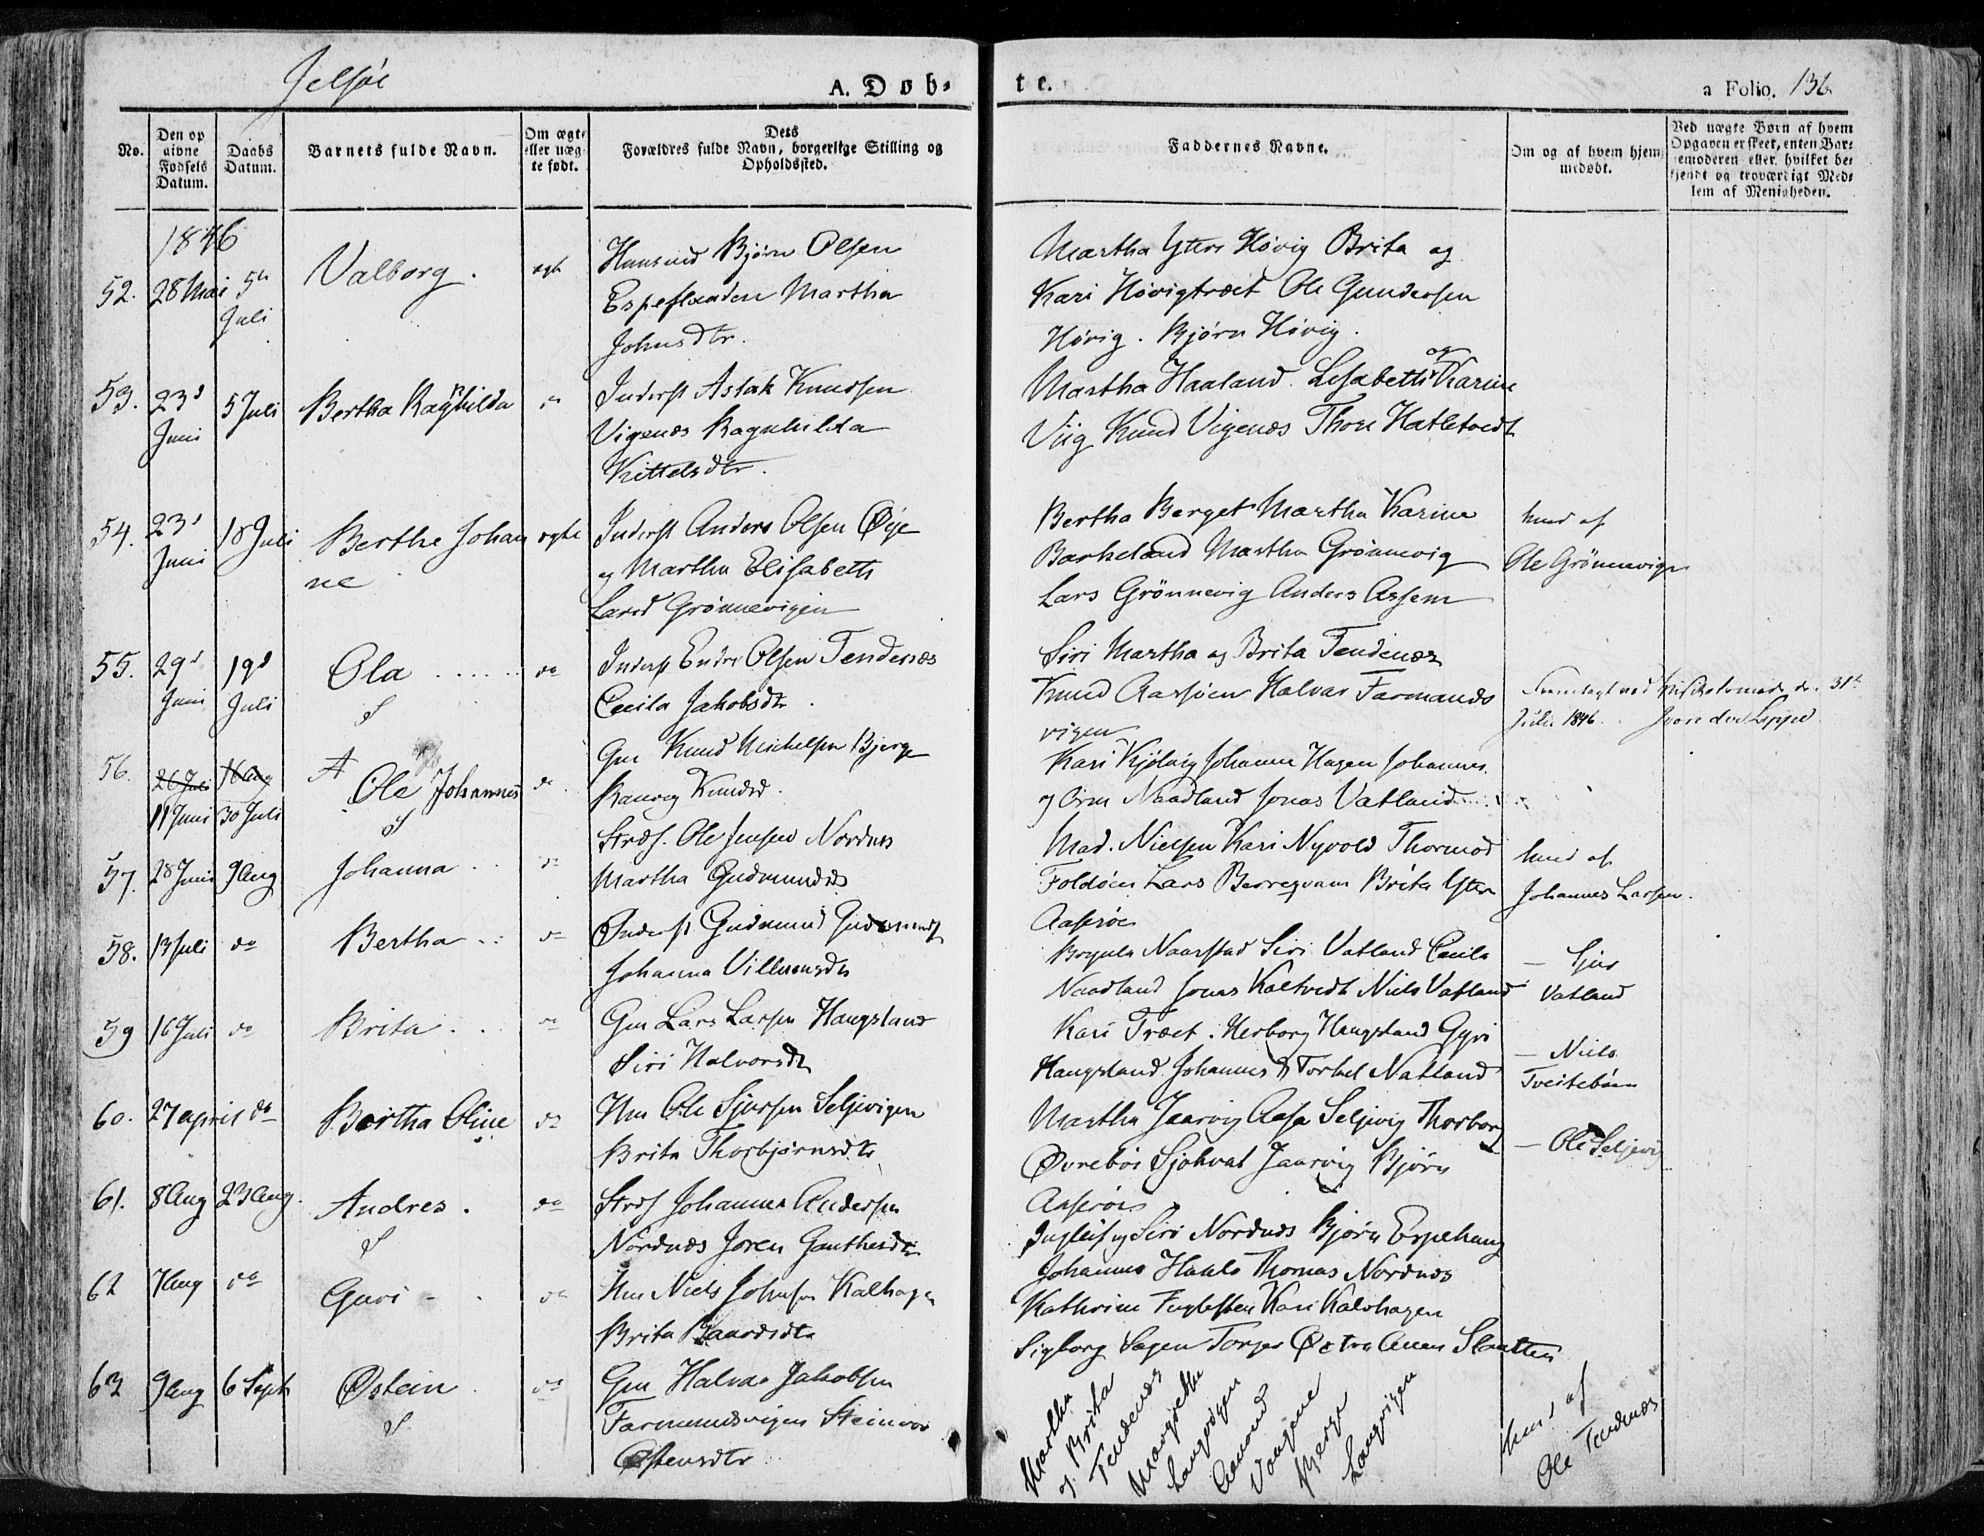 Jelsøe
A. Døb-
te.
a Folio. 136
No.
Den op
givne
Fødsels
Datum.
Daabs
Datum.
Barnets fulde Navn.
Om ægte
eller uæg-
te født.
Dets
Forældres fulde Navn, borgerlige Stilling og
Opholdssted.
Faddernes Navne.
Om og af hvem hjem
medøbt.
Ved uægte Børn af hvem
Opgaven er skeet, enten Bar-
nemoderen eller hvilket be-
kjendt og troværdigt Med-
lem af Menigheden.
1846
52. 28 Mai 5te Juli Valborg. ægte Huusmd Bjørn Olsen
Espeflaaden Martha
Johnsdtr.
Martha Yttre Høvig Brita og
Kari Høvigtræet Ole Gundersen
Høvig. Bjørn Høvig.
53. 23d Juni 5 Juli Bertha Raghilda do Inderst Aslak Knudsen
Vigenæs Ragnhilda
Kittelsdtr.
Martha Haaland. Lisabeth og Karine
Viig Knud Vigenæs Thore Hatletvedt
54. 23d Juni 18 Juli Berthe Johan
ne
ægte Inderst Anders Olsen Øye
og Martha Elisabeth
Larsd Grønnevigen
Bertha Berget Martha Karine
Barkeland Martha Grønnevig
Lars Grønnevig Anders Assem
hmd af
Ole Grønnevigen
55. 29d Juni 19d Juli Ola do Inderst Endre Olsen Tendenæs
Cecila Jakobsdtr.
Siri Martha og Brita Tendenæs
Knud Aarsøen Halvar Farmands
vigen
31te
Juli 1846.
56. 26 Juli 16 Aug
11 Juni 30 Juli
A Ole Johannes do Gm Knud Michelsen Bjerge
Ranvig Knudsd.
Kari Kjølvig Johanne Hagen Johannes
og Orm Naadland Jonas Vatland
57. 28 Juni 9 Aug Johanna do Strds. Ole Jensen Nordnes
Martha Gudmundsd
Mad. Nielsen Kari Nyvold Thormod
Foldøen Lars Berrequam Brita Ytre
Aasrøe
hmd af
Johannes Larsen.
58. 13 Juli do Bertha do Inderst Gudmund Gudmunds
Johanna Villumsdtr
Naarstad Siri Vatland Cecila
Naadland Jonas Kaltvedt Niels Vatland
— Sjur
Vatland
59 16 Juli do Brita do Gm Lars Larsen Haugsland
Siri Halvorsdtr
Kari Træet. Herborg Haugsland Gyri
Haugsland Johannes & Torkel Natland
— Niels
Tveitebøen
60. 27 april do Bertha Oline do Hm Ole Sjursen Seljevigen
Brita Thorbjørnsdtr
Martha Jaarvig Aasa Seljevig Thorborg
Øvrebøe Sjohvat Jaarvig Bjørn
Aasrøe
— Ole Seljevig
61. 8 Aug 23 Aug. Andres. do Strds Johannes Andersen
Nordnæs Joren Gauthesdtr
Ingleif og Siri Nordnæs Bjørn Espehaug
Johannes Thomas Nordnæs
62 7 Aug do Guri do Hm Niels Johnsen Kalhagen
Brita Baardsdtr
Kathrine Fuglesten Kari Kalvhagen
Sigborg Hagen Torger Østen Slaatten
63 9 Aug 6 Septr Østein do Gm Halvar Jakobsen
Farmandsvigen Steinvor
Østensdtr
Martha
og Brita
Tendenæs
Margrethe
Langvigen
Aamund
Vaagene
Bjerge
Langvigen
hmd af
Ole Tendenæs